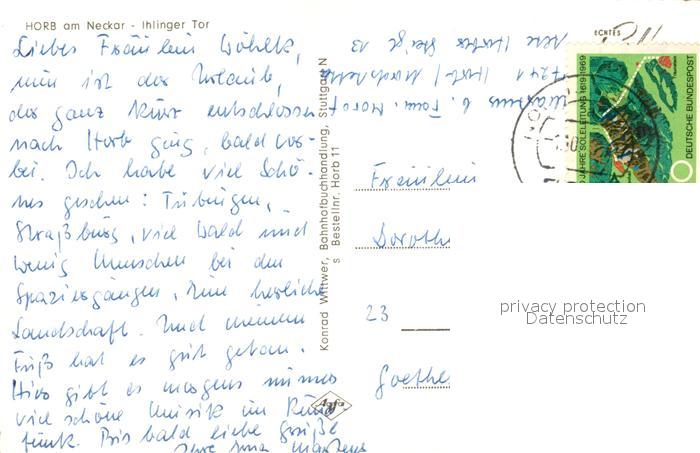 HORB am Neckar - Ihlinger Tor
Liebes Fräulein Wöhlk,
nun ist der Urlaub,
der ganz kurz entschlossen
nach Horb ging, bald vor-
bei. Ich habe viel Schö-
nes gesehen: Tübingen,
Straßburg, viel Wald und
wenig Menschen bei den
Spaziergängen, eine herrliche
Landschaft. Und meinem
Fuß hat es gut getan.
Hier gibt es morgens immer
viel schöne Musik im Rund-
funk. Bis bald liebe Grüße
Ihre
Konrad Wittwer, Bahnhofbuchhandlung, Stuttgart N
s Bestellnr. Horb 11
Agfa
ECHTES
b. Fam.
7241 Horb /
13
JAHRE SOLELEITUNG 1619-1969
DEUTSCHE BUNDESPOST
Fräulein
Doroth
23
Goethe
privacy protection
Datenschutz